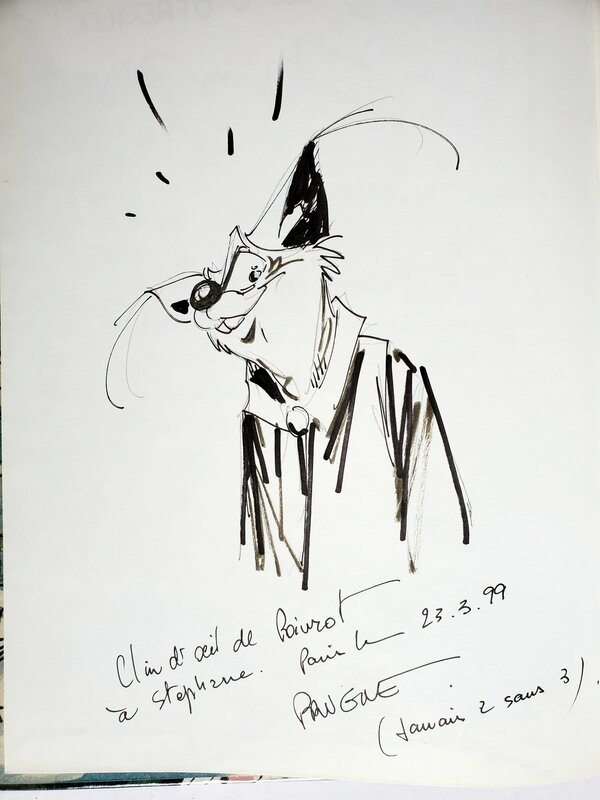 Clin d'œil de Poivrot
à Stephane. Paris le 23.3.99
(Jamais 2 sans 3).